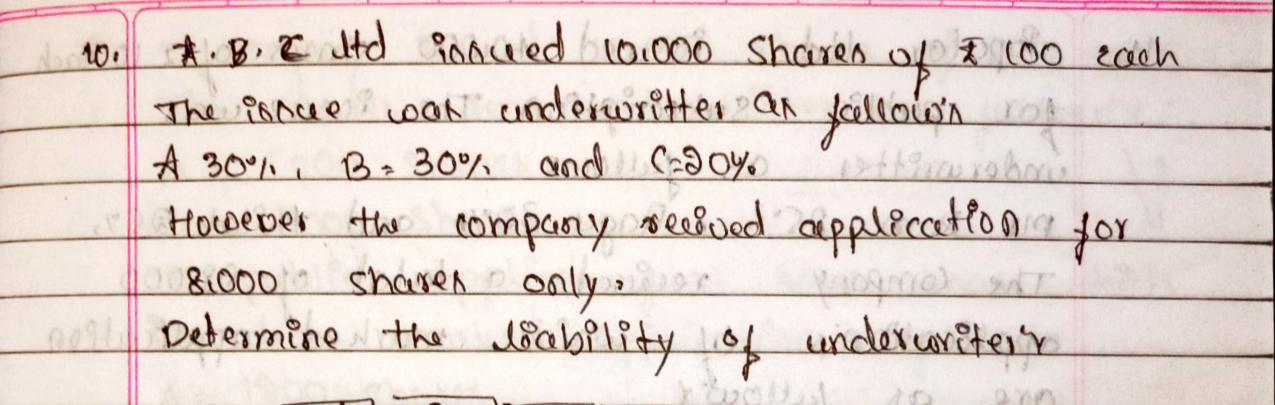 10. A. B. C Ltd issued 10,000 Shares of ₹ 100 each
The issue was underwritter as follow's
A 30%, B = 30% and C=20%
However the company received application for
8,000 shares only.
Determine the liability of underwriter's